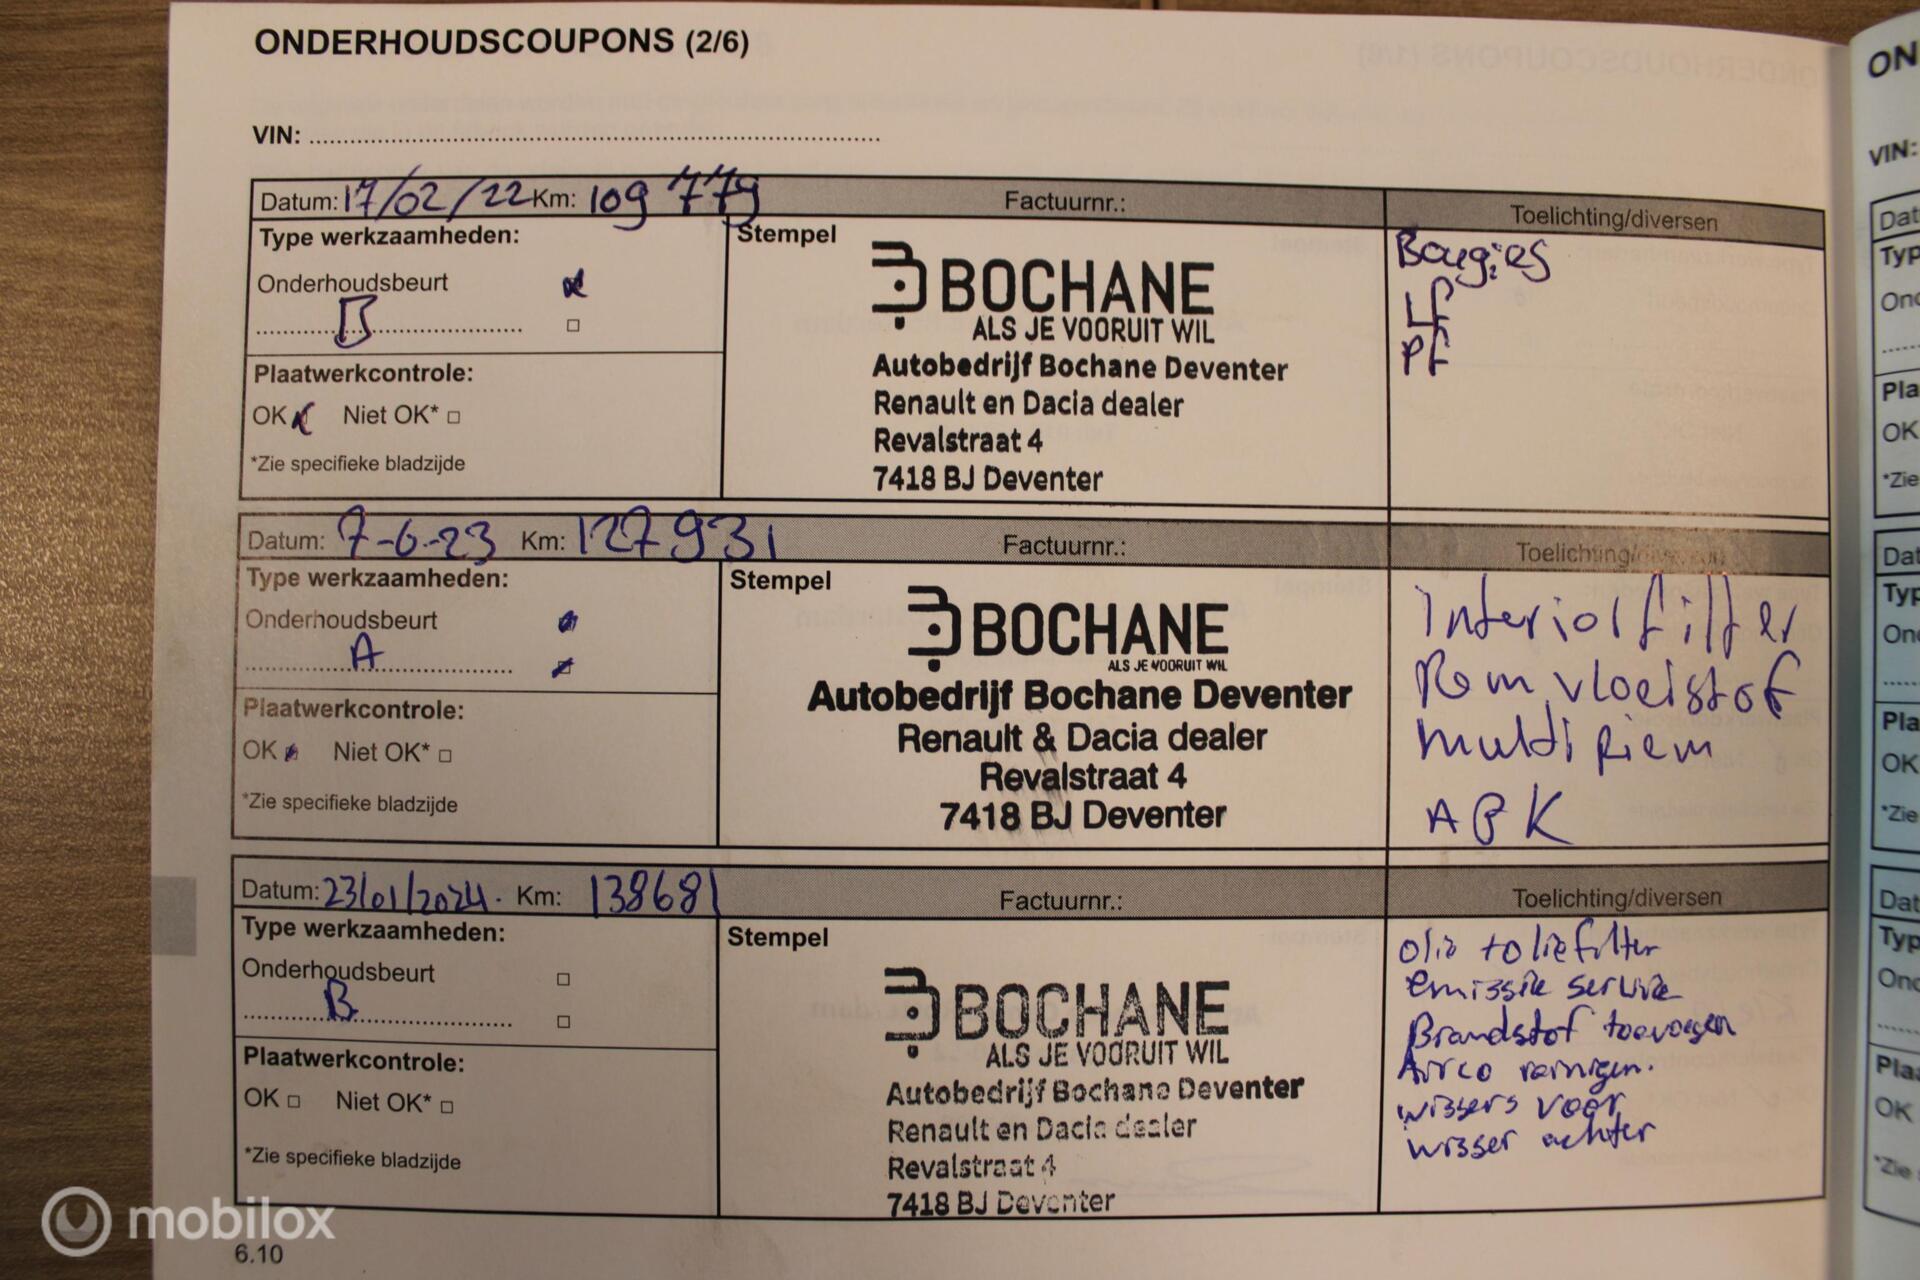 ONDERHOUDSCOUPONS (2/6)
VIN:
Datum: 17/02/22 Km: 109 779 Factuurnr.: Toelichting/diversen
Type werkzaamheden:
Onderhoudsbeurt
B
Plaatwerkcontrole:
OK Niet OK*
*Zie specifieke bladzijde
Stempel
BOCHANE
ALS JE VOORUIT WIL
Autobedrijf Bochane Deventer
Renault en Dacia dealer
Revalstraat 4
7418 BJ Deventer
Bougies
LF
PF
Datum: 7-6-23 Km: 127931 Factuurnr.: Toelichting/diversen
Type werkzaamheden:
Onderhoudsbeurt
A
Plaatwerkcontrole:
OK Niet OK*
*Zie specifieke bladzijde
Stempel
BOCHANE
ALS JE VOORUIT WIL
Autobedrijf Bochane Deventer
Renault & Dacia dealer
Revalstraat 4
7418 BJ Deventer
Interiolfilter
Remvloeistof
multi riem
APK
Datum: 23/01/2024. Km: 138681 Factuurnr.: Toelichting/diversen
Type werkzaamheden:
Onderhoudsbeurt
B
Plaatwerkcontrole:
OK Niet OK*
*Zie specifieke bladzijde
Stempel
BOCHANE
ALS JE VOORUIT WIL
Autobedrijf Bochane Deventer
Renault en Dacia dealer
Revalstraat 4
7418 BJ Deventer
olie + oliefilter
emissie service
Brandstof toevoegen
Airco reinigen.
wissers voor
wisser achter
6.10
mobilox
ON
VIN:
Dat
Typ
Ond
Pla
OK
*Zie
Dat
Typ
Ond
Pla
OK
*Zie
Dat
Typ
Ond
Plaa
OK
*Zie